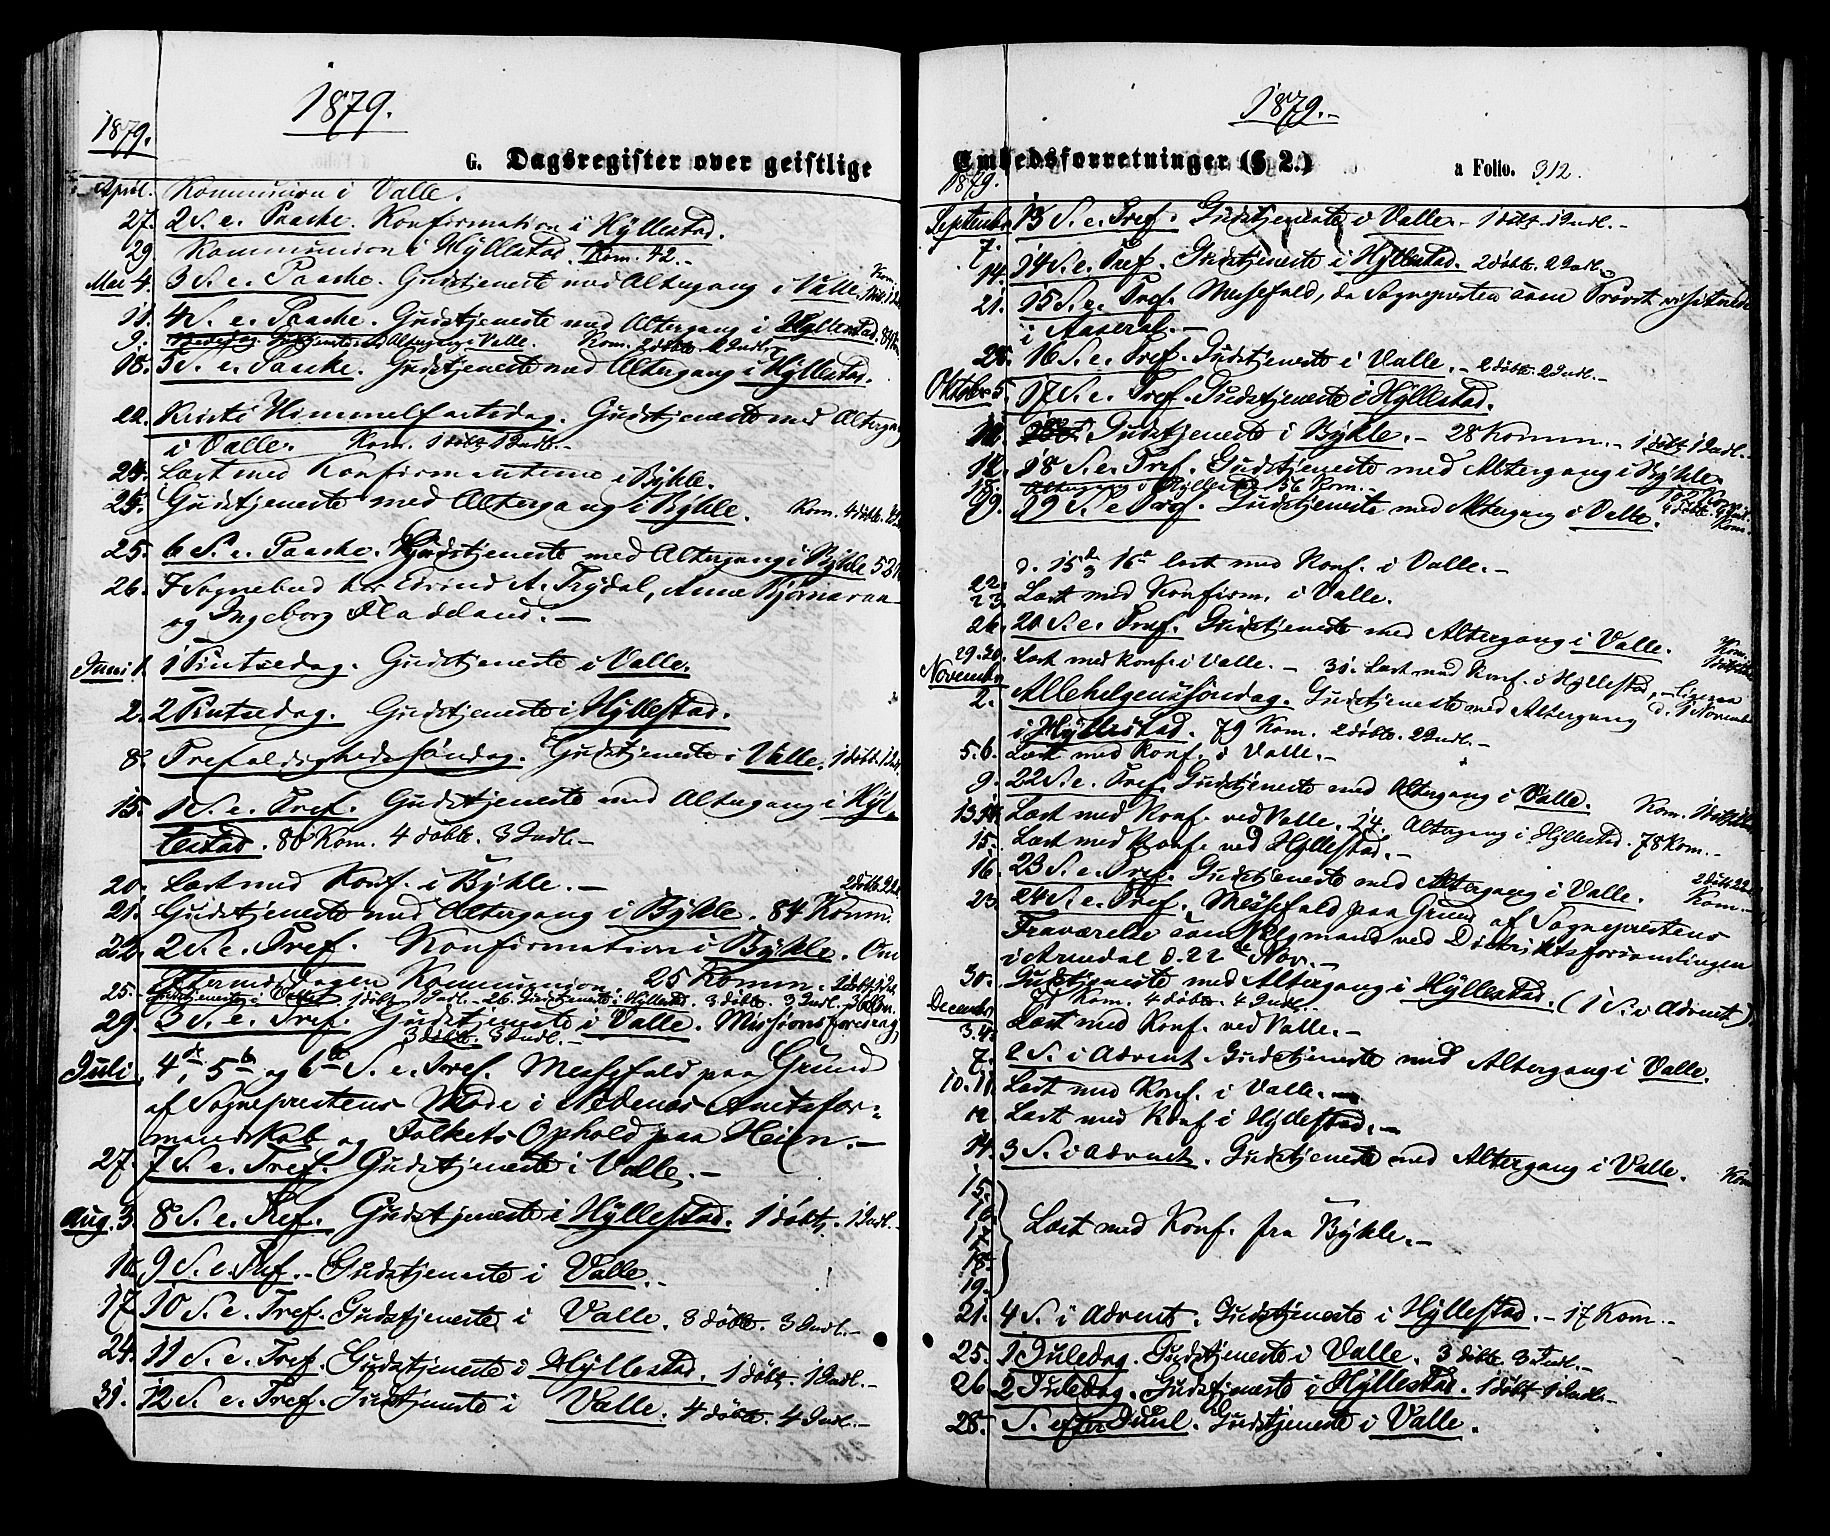 1879.
1879.
G. Dagsregister over geistlige
April. Kommunion i Valle.
27. 2 S. e. Paaske. Konfirmation i Hyllestad.
29. Kommunion i Hyllestad. Kom. 42.-
Mai 4. 3 S. e. Paaske. Gudstjeneste med Altergang i Valle. Kom.
11. 4 S. e. Paaske. Gudstjeneste med Altergang i Hyllestad.
9. Gudstjeneste m. Altergang i Valle. Kom. 2 döbte. Indl.
18. 5 S. e. Paaske. Gudstjeneste med Altergang i Hyllestad.
22. Kristi Himmelfartsdag. Gudstjeneste med Altergang
i Valle. Kom. 1 döbt. 1 Indl.-
24. Læst med Konfirmanterne i Bykle.
25. Gudstjeneste med Altergang i Bykle. Kom. 4 döbte.
25. 6 S. e. Paaske. Gudstjeneste med Altergang i Bykle 52
26. I Sognebud hos Eivind A. Trydal, Anne Bjørnaraa
og Ingeborg Fladeland.-
Juni 1. 1 Pintsedag. Gudstjeneste i Valle.
2. 2 Pintsedag. Gudstjeneste i Hyllestad.
8. Trefoldighedssöndag. Gudstjeneste i Valle. 1 döbt. 1 Indl.
15. 1 S. e. Tref. Gudstjeneste med Altergang i Hyl-
lestad. 86 Kom. 4 döbte. 3 Indl.-
20. Læst med Konf. i Bykle.- 2 döbte.
21. Gudstjeneste med Altergang i Bykle. 84 Komm.
22. 2 S. e. Tref. Konfirmation i Bykle. Om
Eftermiddagen Kommunion. 25 Komm.
25. Gudstjeneste i Valle 1 döbt. 1 Indl.- 26. Gudstjeneste i Hyllestad. 3 döbte. 3 Indl.
29. 3 S. e. Tref. Gudstjeneste i Valle. Missionsforening
3 döbte. 3 Indl.-
Juli 4de, 5te og 6te S. e. Tref. Messefald paa Grund
af Sognepræstens Møde i Nedenæs Amtsfor-
mandskab og Folkets Ophold paa Heien.-
27. 7 S. e. Tref. Gudstjeneste i Valle.-
Aug. 3. 8 S. e. Tref. Gudstjeneste i Hyllestad. 1 döbt. 1 Indl.-
10. 9 S. e. Tref.- Gudstjeneste i Valle.-
17. 10 S. e. Tref. Gudstjeneste i Valle. 3 döbte. 3 Indl.-
24. 11 S. e. Tref. Gudstjeneste i Hyllestad. 1 döbt. 1 Indl.-
31. 12 S. e. Tref. Gudstjeneste i Valle. 4 döbte. 4 Indl.-
1879.-
Embedsforretninger (§ 2.)
a Folio. 312.
1879.
September
7. 13 S. e. Tref. Gudstjeneste i Valle.- 1 döbt. 1 Indl.-
14. 14 S. e. Tref. Gudstjeneste i Hyllestad. 2 döbte. 2 Indl.
21. 15 S. e. Tref. Messefald, da Sognepresten som Provst visiterede
i Aaseral.-
28. 16 S. e. Tref. Gudstjeneste i Valle.- 2 döbte. 2 Indl.-
Oktober 5. 17 S. e. Tref. Gudstjeneste i Hyllestad.
Gudstjeneste i Bykle.- 28 Komm.- 1 döbt. 1 Indl.-
12. 18 S. e. Tref. Gudstjeneste med Altergang i Bykle.
Altergang i Hyllestad 56 Kom.-
19. 19 S. e Tref. Gudstjeneste med Altergang i Valle. Kom.
d. 15de 16de læst med Konf. i Valle.-
22. 23. Læst med Konfirm. i Valle.
26. 20 S. e. Tref. Gudstjeneste med Altergang i Valle. Kom.
Læst med Konf. i Valle.- Læst med Konf. i Hyllestad,- Ligesaa
November
2. Allehelgenssöndag. Gudstjeneste med Altergang d. 1 November
i Hyllestad. 79 Kom. 2 döbte. 2 Indl.-
5. 6. Læst med Konf. i Valle.-
9. 22 S. e. Tref. Gudstjeneste med Altergang i Valle. Kom.
13. 14. Læst med Konf. ved Valle. 14. Altergang i Hyllestad. 78 Kom.-
15. Læst med Konf. ved Hyllestad.-
16. 23 S. e. Tref. Gudstjeneste med Altergang i Valle. Kom.-
23. 24 S. e. Tref. Messefald paa Grund af Sogneprestens
Fraværelse som Valgmand ved Distriktsforsamlingen
i Arendal d. 22de Nov.-
30. Gudstjeneste med Altergang i Hyllestad. (1 S. i Advent).
Kom. 4 döbte. 4 Indl.
December
3. 4. Læst med Konf. ved Valle.-
7. 2 S. i Advent. Gudstjeneste med Altergang i Valle.
10. 11. Læst med Konf. i Valle.-
12. Læst med Konf i Hyllestad.-
14. 3 S. i Advent. Gudstjeneste med Altergang i Valle. Kom
15.
16.
17.
18.
19.
Læst med Konf. fra Bykle.-
21. 4 S. i Advent. Gudstjeneste i Hyllestad.- 17 Kom.-
25. 1 Juledag. Gudstjeneste i Valle. 3 döbte. 3 Indl.-
26. 2 Juledag. Gudstjeneste i Hyllestad. 1 döbt 1 Indl.-
28. S. efter Juul. Gudstjeneste i Valle.